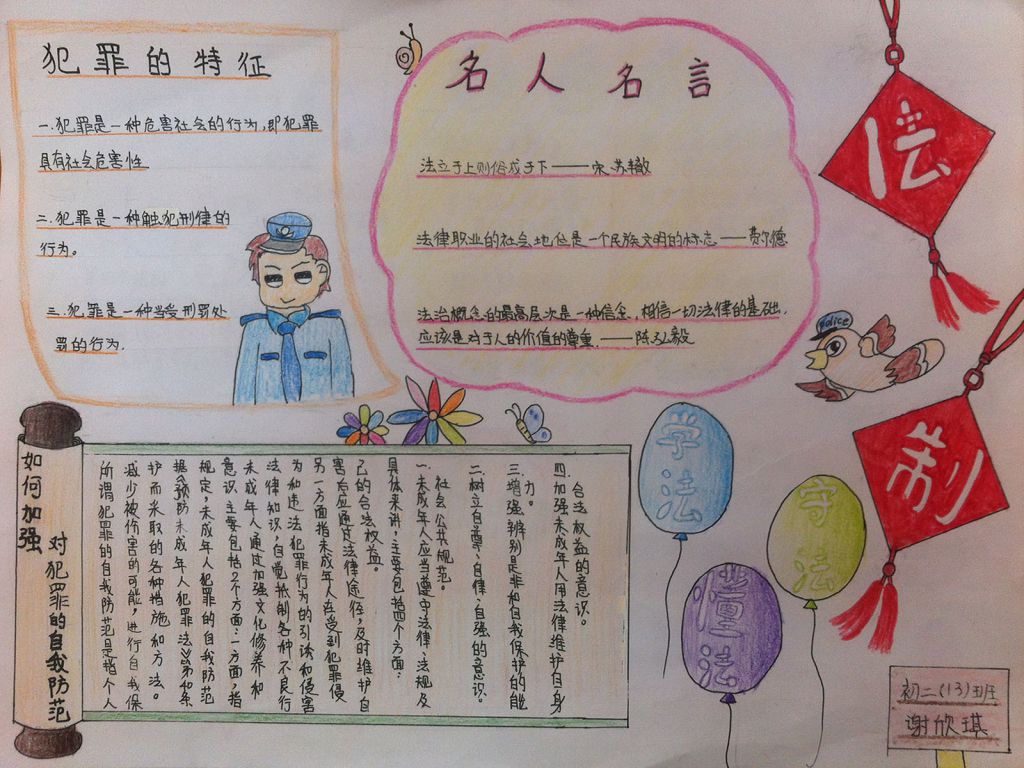 犯罪的特征
一.犯罪是一种危害社会的行为,即犯罪
具有社会危害性
二.犯罪是一种触犯刑律的
行为。
三.犯罪是一种当受刑罚处
罚的行为.
名人名言
法立于上则俗成于下——宋.苏辙
法律职业的社会地位是一个民族文明的标志——费尔德
法治概念的最高层次是一种信念,相信一切法律的基础,
应该是对于人的价值的尊重.——陈弘毅
法
制
Police
如何加强
对犯罪的自我防范
所谓犯罪的自我防范是指个人
减少被伤害的可能,进行自我保
护而采取的各种措施和方法。
据《预防未成年人犯罪法》第40条
规定,未成年人犯罪的自我防范
意识,主要包括2个方面:一方面,指
未成年人通过加强文化修养和
法律知识,自觉抵制各种不良行
为和违法犯罪行为的引诱和侵害
另一方面指未成年人在受到犯罪侵
害后应通过法律途径,及时维护自
己的合法权益。
具体来讲,主要包括四个方面:
一.未成年人应当遵守法律、法规及
社会公共规范。
二.树立自尊、自律、自强的意识。
三.增强辨别是非和自我保护的能
力。
四.加强未成年人用法律维护自身
合法权益的意识。
学法
守法
懂法
初二(13)班
谢欣琪